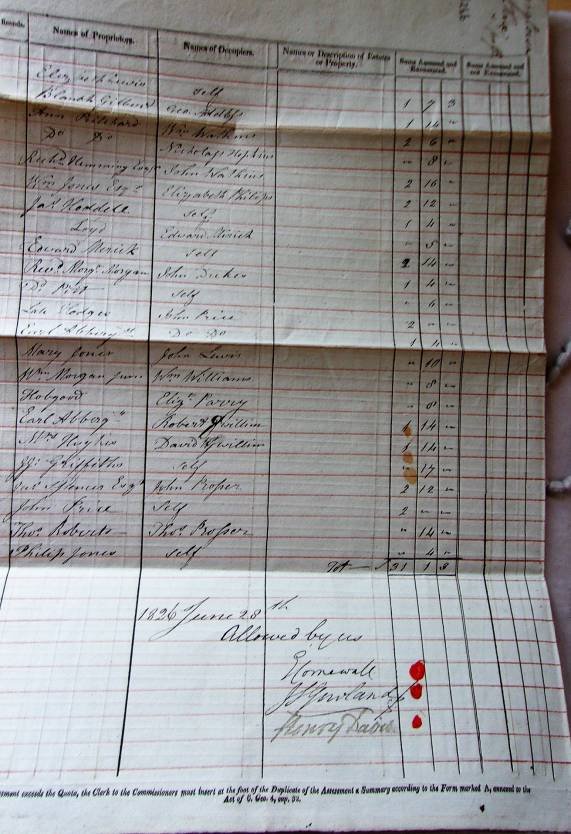 Rentals.
Names of Proprietors.
Names of Occupiers.
Names or Description of Estates or Property.
Sums Assessed and Exonerated.
Sums Assessed and not Exonerated.
Elizabeth Lewis self 1 7 3
Blanch Geo. 1 14 "
Ann Pritchard Wm Watkins 2 6 "
Do Do Nicholass Hopkins " 8 "
Richd Hemming Esqr John Watkins 2 16 "
Wm Jones Esqr Elizabeth Philips 2 12 "
Jas Hoddell self 1 4 "
Loyd Edward Merick " 5 "
Edward Merick self 2 14 "
Revd Morgn Morgan John 1 4 "
Do self " 6 "
Late Hodges John Price 2 " "
Earl Do Do 1 4 "
Mary Jones John Lewis " 10 "
Wm Morgan Junr Wm Williams " 8 "
Hobgood Elizth Parry " 8 "
Earl Abberg" Robert Gwillim 1 14 "
Mrs David Gwillim 1 14 "
Griffiths self " 17 "
Esqr Wm Prosser 2 12 "
John Price Self 2 " "
Thos Roberts Thos Prosser " 14 "
Philip Jones self " 4 "
Tot — £ 31 1 3
1826 June 28th
Allowed by us
Cornewall
Henry
exceeds the Quota, the Clerk to the Commissioners must insert at the foot of the Duplicate of the Assessment a Summary according to the Form marked A, annexed to the
Act of 6. Geo. 4, cap. 32.